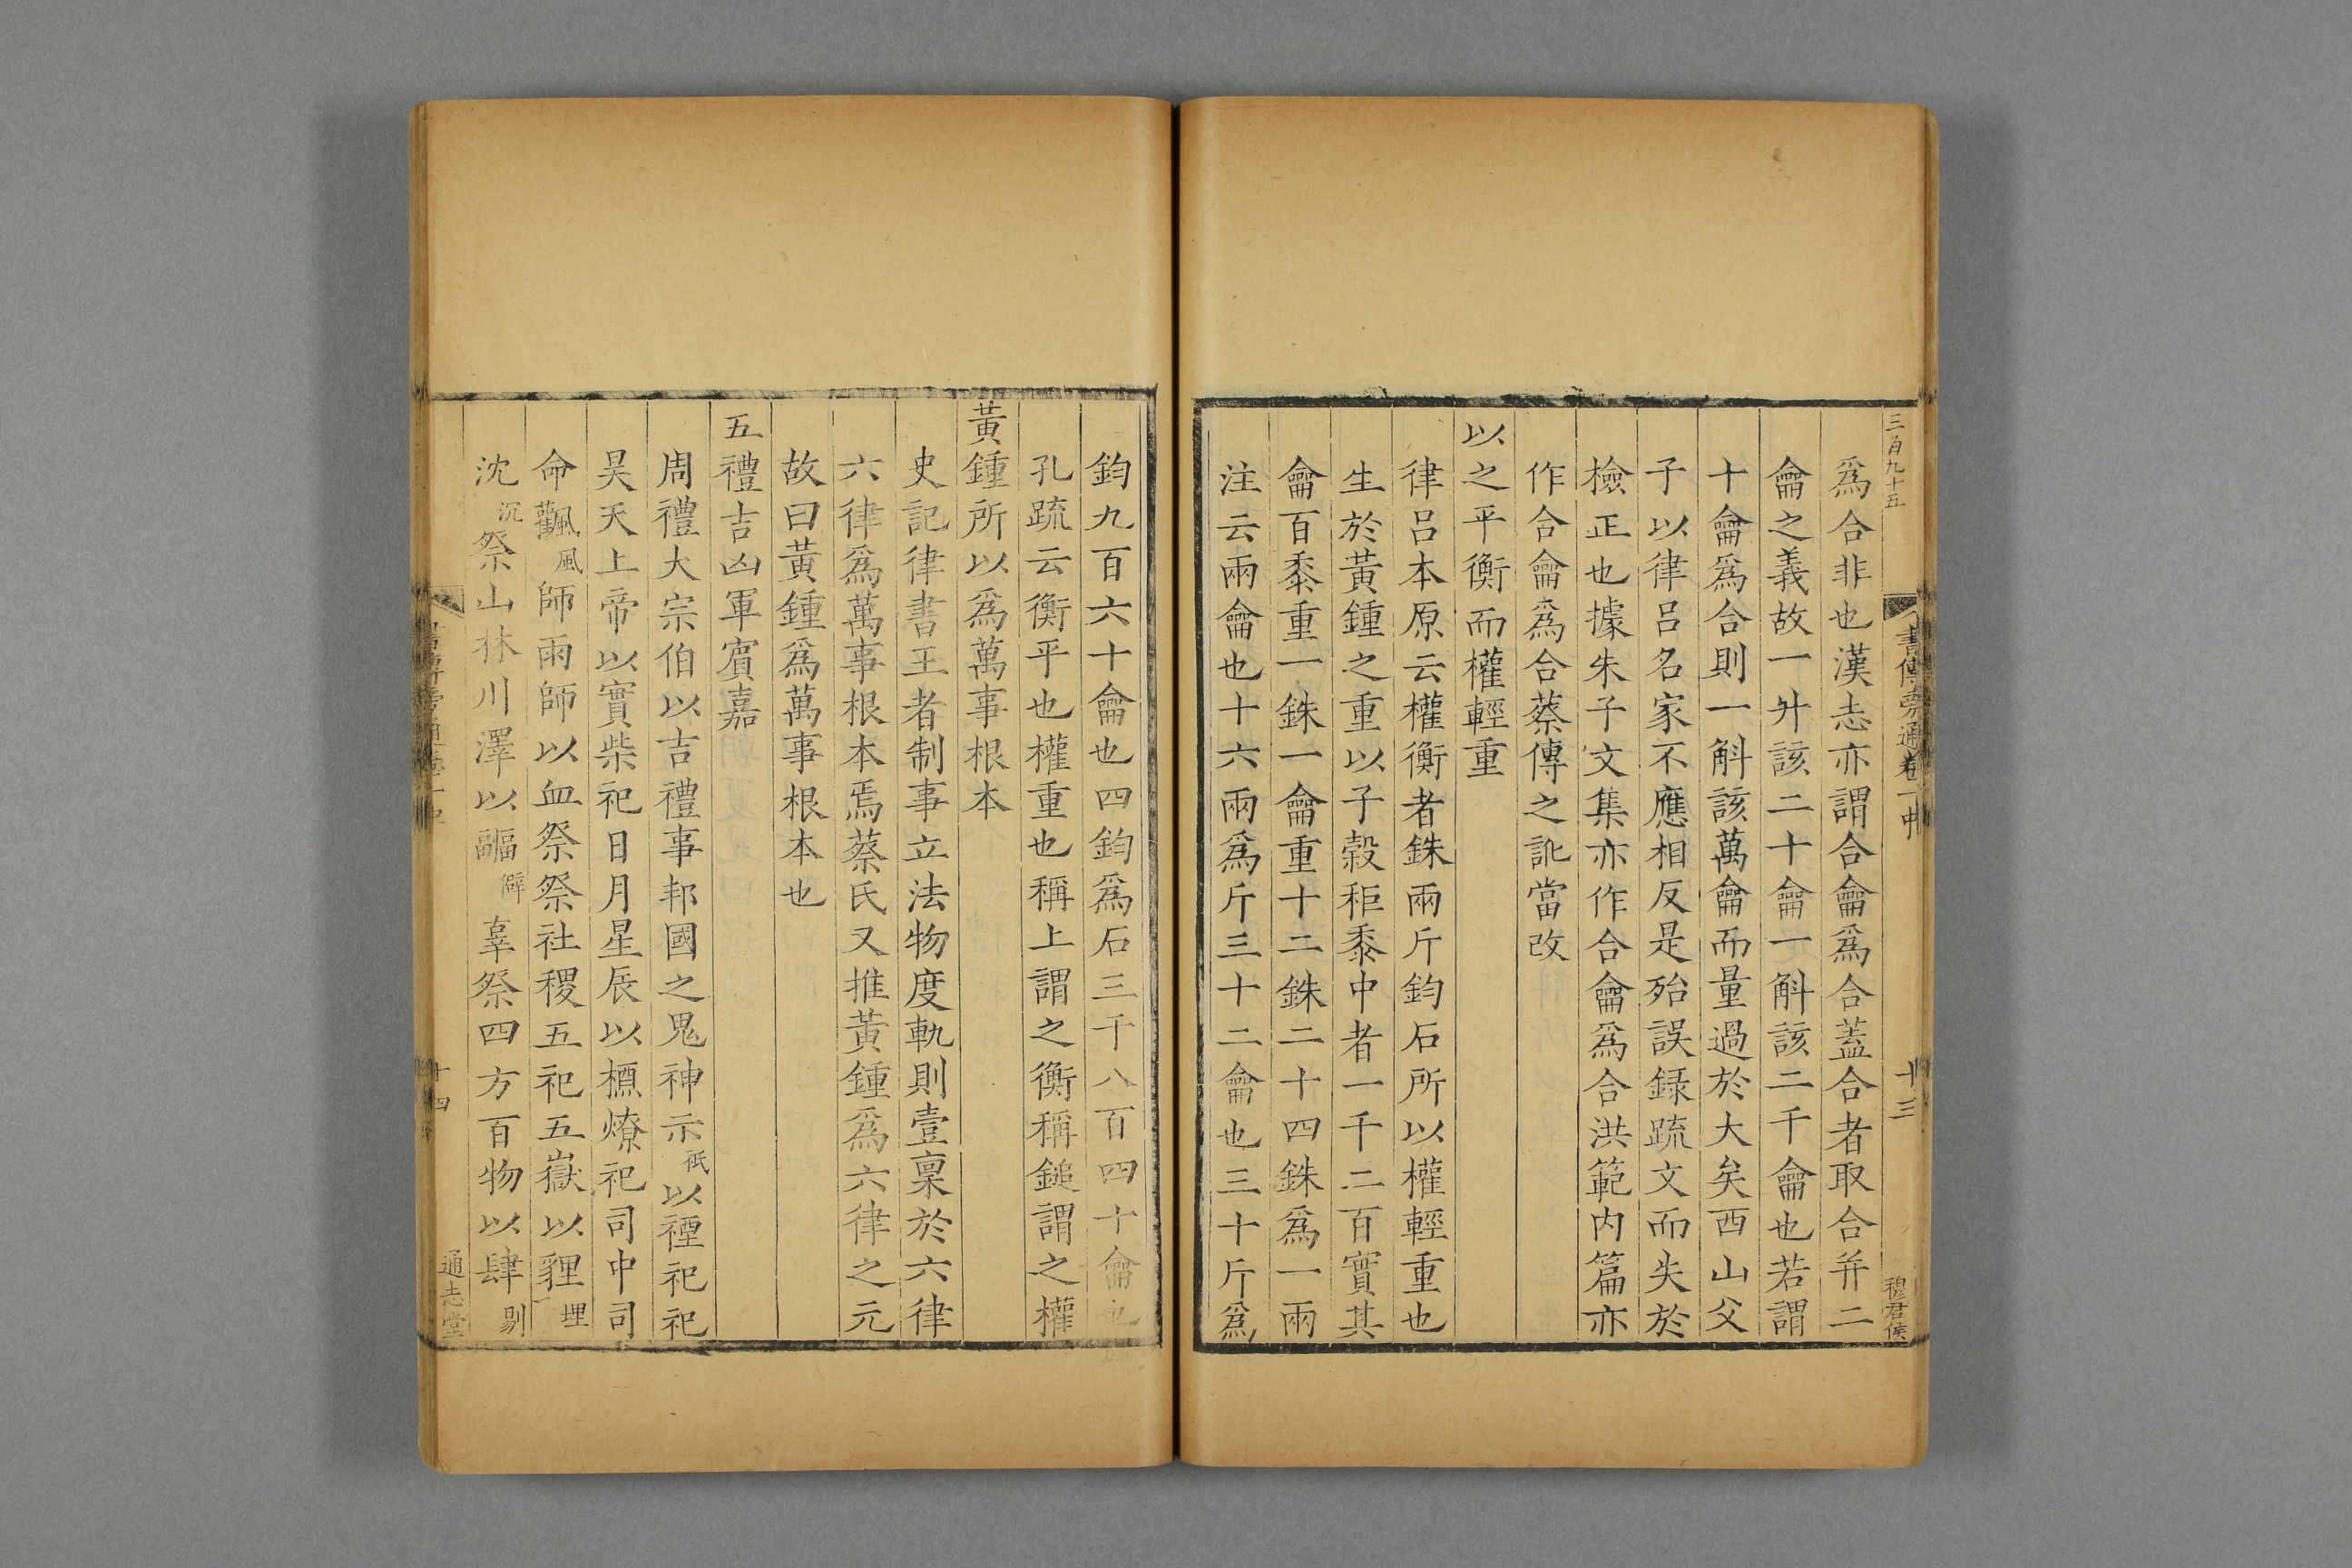 三百九十五
書傳旁通卷一中
十三
穆君侯
爲合非也漢志亦謂合龠爲合蓋合者取合并二
龠之義故一升該二十龠一斛該二千龠也若謂
十龠爲合則一斛該萬龠而量過於大矣西山父
子以律呂名家不應相反是殆誤録疏文而失於
檢正也據朱子文集亦作合龠爲合洪範内篇亦
作合龠爲合蔡傳之訛當改
以之平衡而權輕重
律呂本原云權衡者銖兩斤鈞石所以權輕重也
生於黃鍾之重以子穀秬黍中者一千二百實其
龠百黍重一銖一龠重十二銖二十四銖爲一兩
注云兩龠也十六兩爲斤三十二龠也三十斤爲
鈞九百六十龠也四鈞爲石三千八百四十龠也
孔疏云衡平也權重也稱上謂之衡稱鎚謂之權
黃鍾所以爲萬事根本
史記律書王者制事立法物度軌則壹稟於六律
六律爲萬事根本焉蔡氏又推黃鍾爲六律之元
故曰黃鍾爲萬事根本也
五禮吉凶軍賓嘉
周禮大宗伯以吉禮事邦國之鬼神示祇以禋祀祀
昊天上帝以實柴祀日月星辰以槱燎祀司中司
命飌風師雨師以血祭祭社稷五祀五嶽以貍埋
沈沉祭山林川澤以疈僻辜祭四方百物以肆剔
書傳旁通卷一中
十四
通志堂